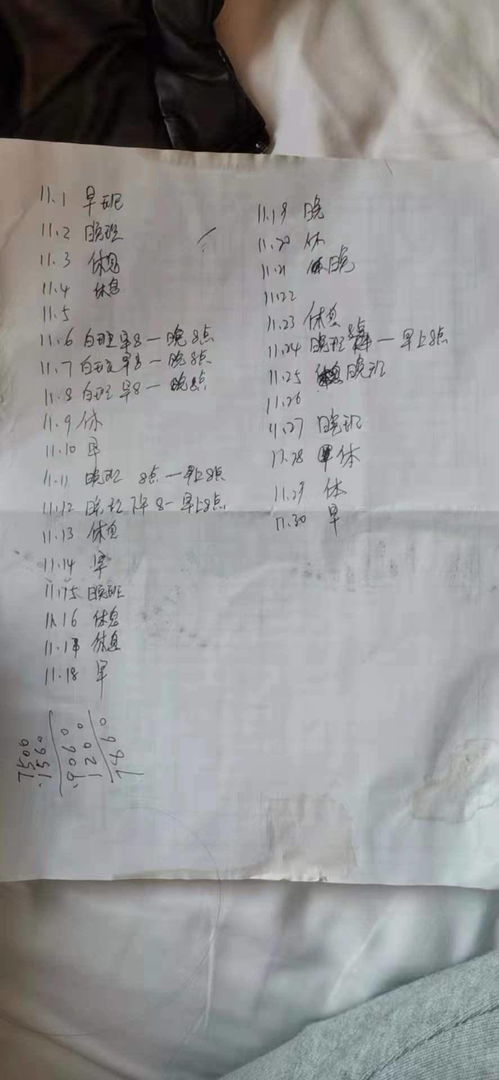 11.1 早班
11.2 晚班
11.3 休息
11.4 休息
11.5
11.6 白班早8一晚8点
11.7 白班早8一晚8点
11.8 白班早8一晚8点
11.9 休
11.10 早
11.11 晚班 8点一早上8点
11.12 晚班下午8一早上8点
11.13 休息
11.14 早
11.15 晚班
11.16 休息
11.17 休息
11.18 早
11.19 晚
11.20 休
11.21 晚
11.22
11.23 休息
11.24 晚班 8点一早上8点
11.25 晚班
11.26
11.27 晚班
11.28 休
11.29 休
11.30 早
7500